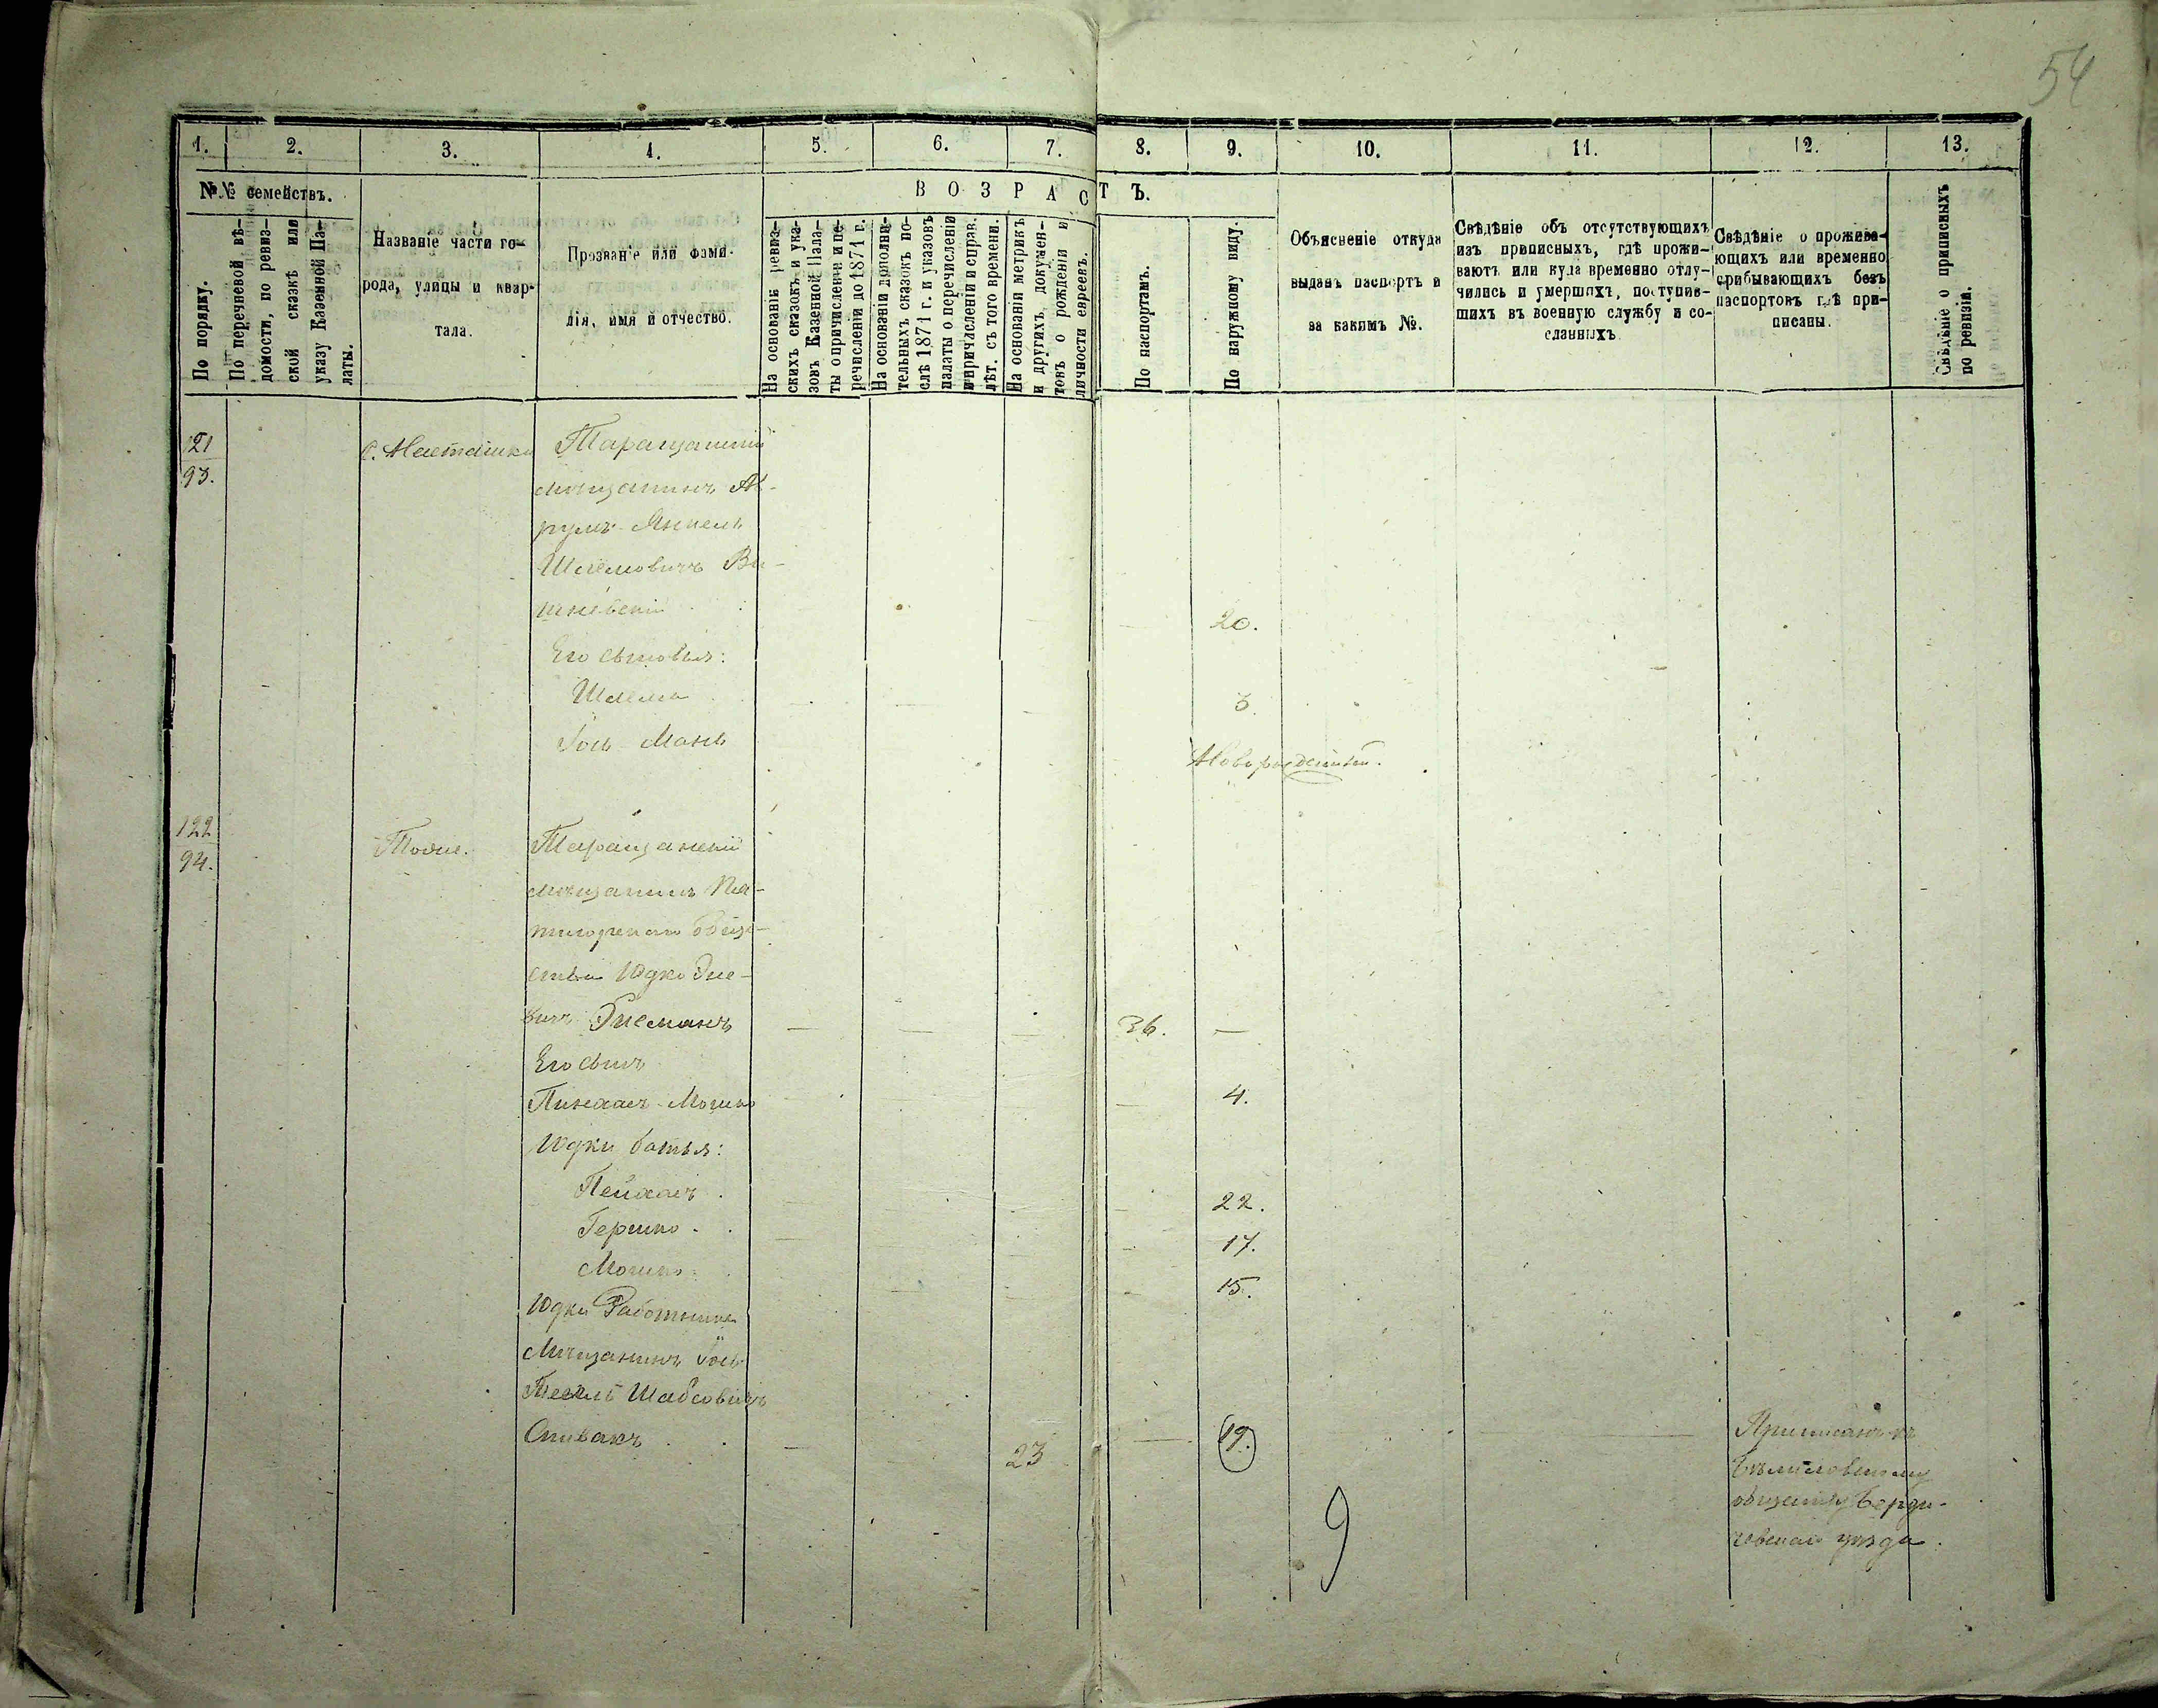 54
1. 2. 3. 4. 5. 6. 7. 8. 9. 10. 11. 12. 13.
№№ семействъ.
В О З Р А С Т Ъ.
По порядку.
По перечневой вѣ-
домости, по ревиз-
ской сказкѣ или
указу Казенной Па-
латы.
Названіе части го-
рода, улицы и квар-
тала.
Прозваніе или фами-
лія, имя и отчество.
На основаніи ревиз-
скихъ сказокъ и ука-
зовъ Казенной Пала-
ты о причисленіи и пе-
речисленіи до 1871 г.
На основаніи дополни-
тельныхъ сказокъ по-
слѣ 1871 г. и указовъ
палаты о перечисленіи
и причисленіи и справ.
лѣт. съ того времени.
На основаніи метрикъ
и другихъ докумен-
товъ о рожденіи и
личности евреевъ.
По паспортамъ.
По наружному виду.
Объясненіе откуда
выданъ паспортъ и
за какимъ №.
Свѣдѣніе объ отсутствующихъ
изъ приписныхъ, гдѣ прожи-
ваютъ или куда временно отлу-
чились и умершихъ, поступив-
шихъ въ военную службу и со-
сланныхъ.
Свѣдѣніе о прожива-
ющихъ или временно
прибывающихъ безъ
паспортовъ гдѣ при-
писаны.
Свѣдѣніе о приписныхъ
по ревизіи.
121
93.
с. Насташки
Таращанскій
мѣщанинъ
Янкель
Шлемовичъ Ви-
шневскій
20.
Его сыновья:
Шлема
3.
Мань
Новорожденный.
122
94.
Тоже.
Таращанскій
мѣщанинъ Пя-
тигорскаго обще-
ства Юдко
36. —
Его сынъ
Пинхасъ-Мошко
4.
Юдки батья:
Пейсахъ
22.
Гершко
17.
Мошко
15.
Юдки Работникъ
Мѣщанинъ
Шабсовичъ
Спивакъ
23
19.
Приписанъ къ
Бѣлиловскому
обществу Берди-
чевскаго уѣзда.
9